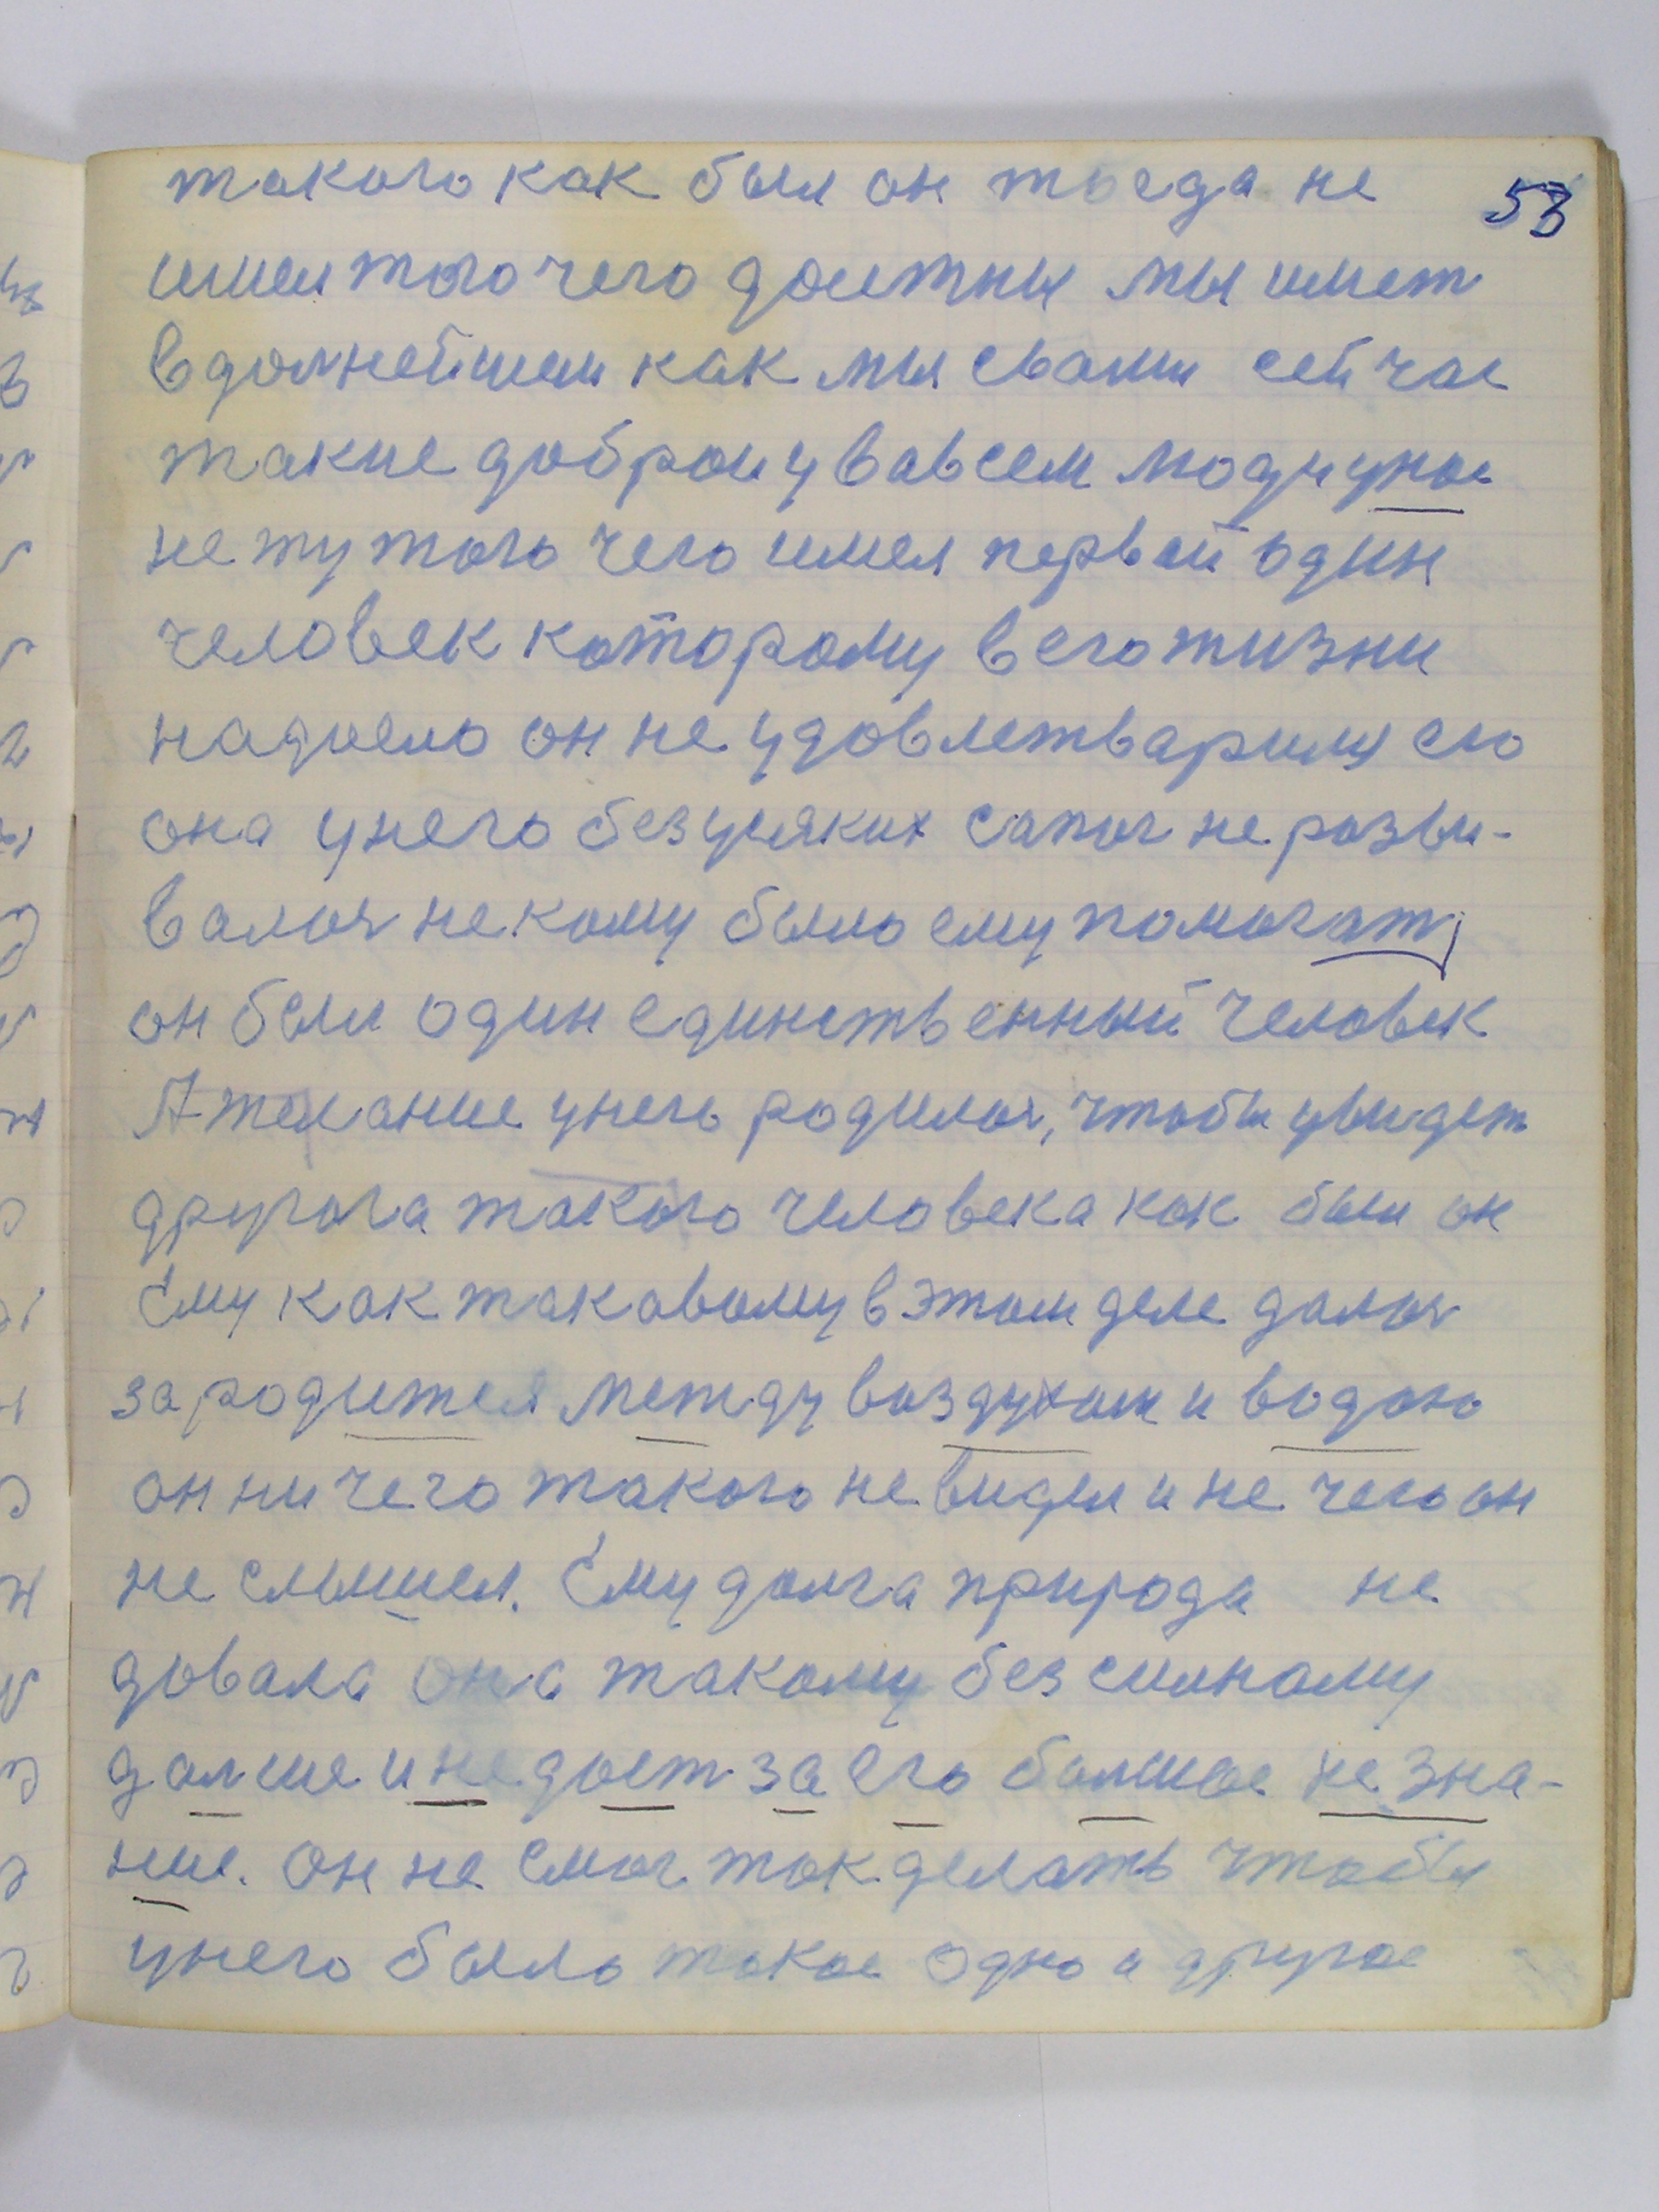 такого как был он тогда не
53
имел того чего должны мы имет
в далнейшем как мы с вами сейчас
такие добром у вавсем люди у нас
нету того чего имел первый один
человек которому в его жизни
надоело он не удовлетварился ею
она у него без усяких сапог не разви-
валася некому было ему помогать
он был один единственный человек
А желание у него родилося, чтобы увидет
другога такого человека как был он
Ему как таковому в этом деле далося
зародится между воздухом и водою
он ничего такого не видел и не чего он
не слышел. Ему долга природа не
довала она такому безсилному
далше и не дает за его балшое незна-
ние. Он не смог так делать чтобы
у него было такое одно и другое